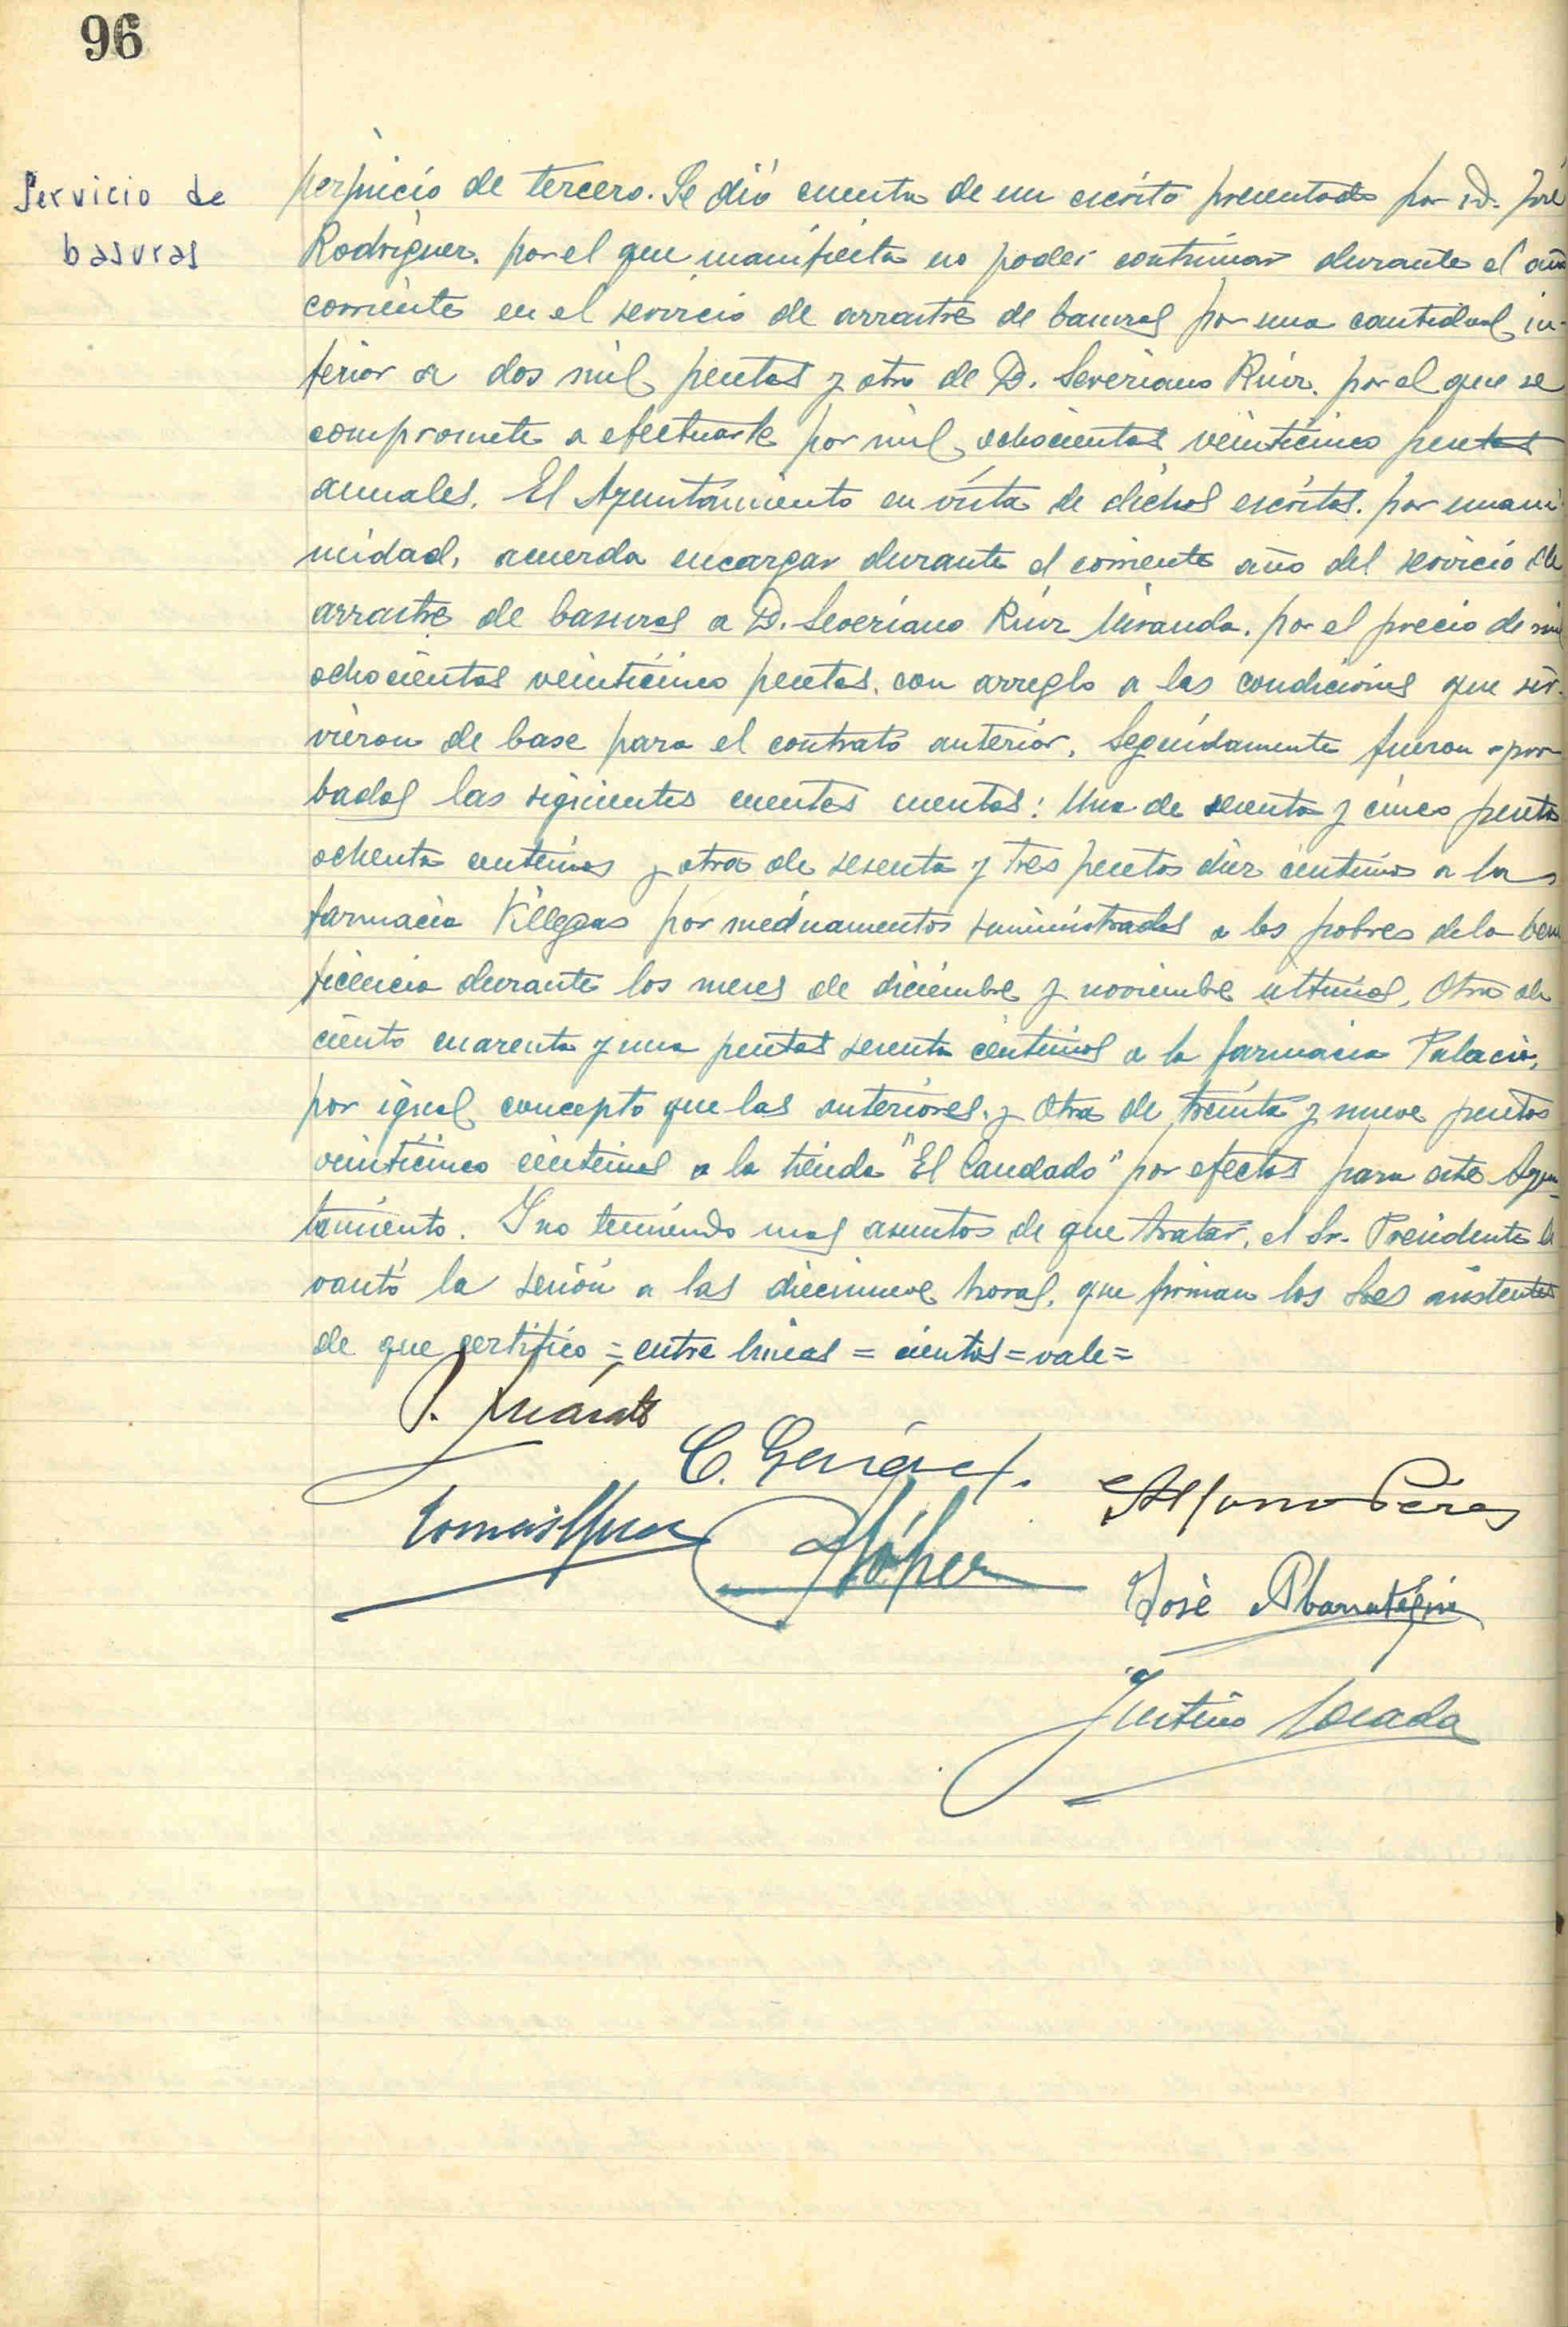 96
Servicio de
basuras
perjuicio de tercero. Se dió cuenta de un escrito presentado por D. José
Rodríguez, por el que manifiesta no poder continuar durante el año
corriente en el servicio de arrastre de basuras por una cantidad in-
ferior a dos mil pesetas y otro de D. Severiano Ruiz, por el que se
compromete a efectuarle por mil ochocientas veinticinco pesetas
anuales. El Ayuntamiento en vista de dichos escritos, por unani-
midad, acuerda encargar durante el corriente año del servicio de
arrastre de basuras a D. Severiano Ruiz Miranda, por el precio de mil
ochocientas veinticinco pesetas, con arreglo a las condiciones que sir-
vieron de base para el contrato anterior. Seguidamente fueron apro-
badas las siguientes cuentas cuentas: Una de sesenta y cinco pesetas
ochenta centimos y otra de sesenta y tres pesetas diez centimos a la
farmacia Villegas por medicamentos suministrados a los pobres de la bene
ficencia durante los meses de diciembre y noviembre ultimos. Otra de
ciento cuarenta y una pesetas sesenta centimos a la farmacia Palacio,
por igual concepto que las anteriores. y Otra de treinta y nueve pesetas
veinticinco centimos a la tienda "El Candado" por efectos para este Ayun-
tamiento. Y no teniendo mas asuntos de que tratar, el Sr. Presidente le
vantó la sesión a las diecinueve horas, que firman los Sres asistentes
de que certifico = entre lineas = cientos = vale =
C.
Alfonso Pérez
López
José Abarrategui
Justino Losada